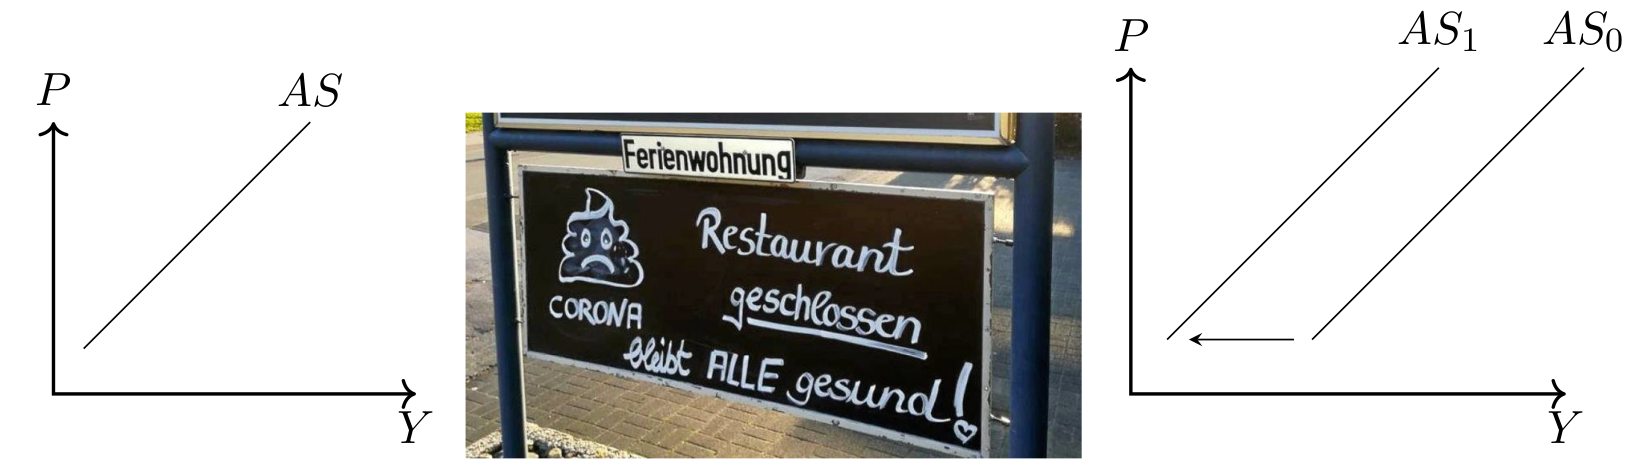 P
AS
Y
Ferienwohnung
CORONA
Restaurant
geschlossen
bleibt ALLE gesund!
P
AS₁
AS₀
Y